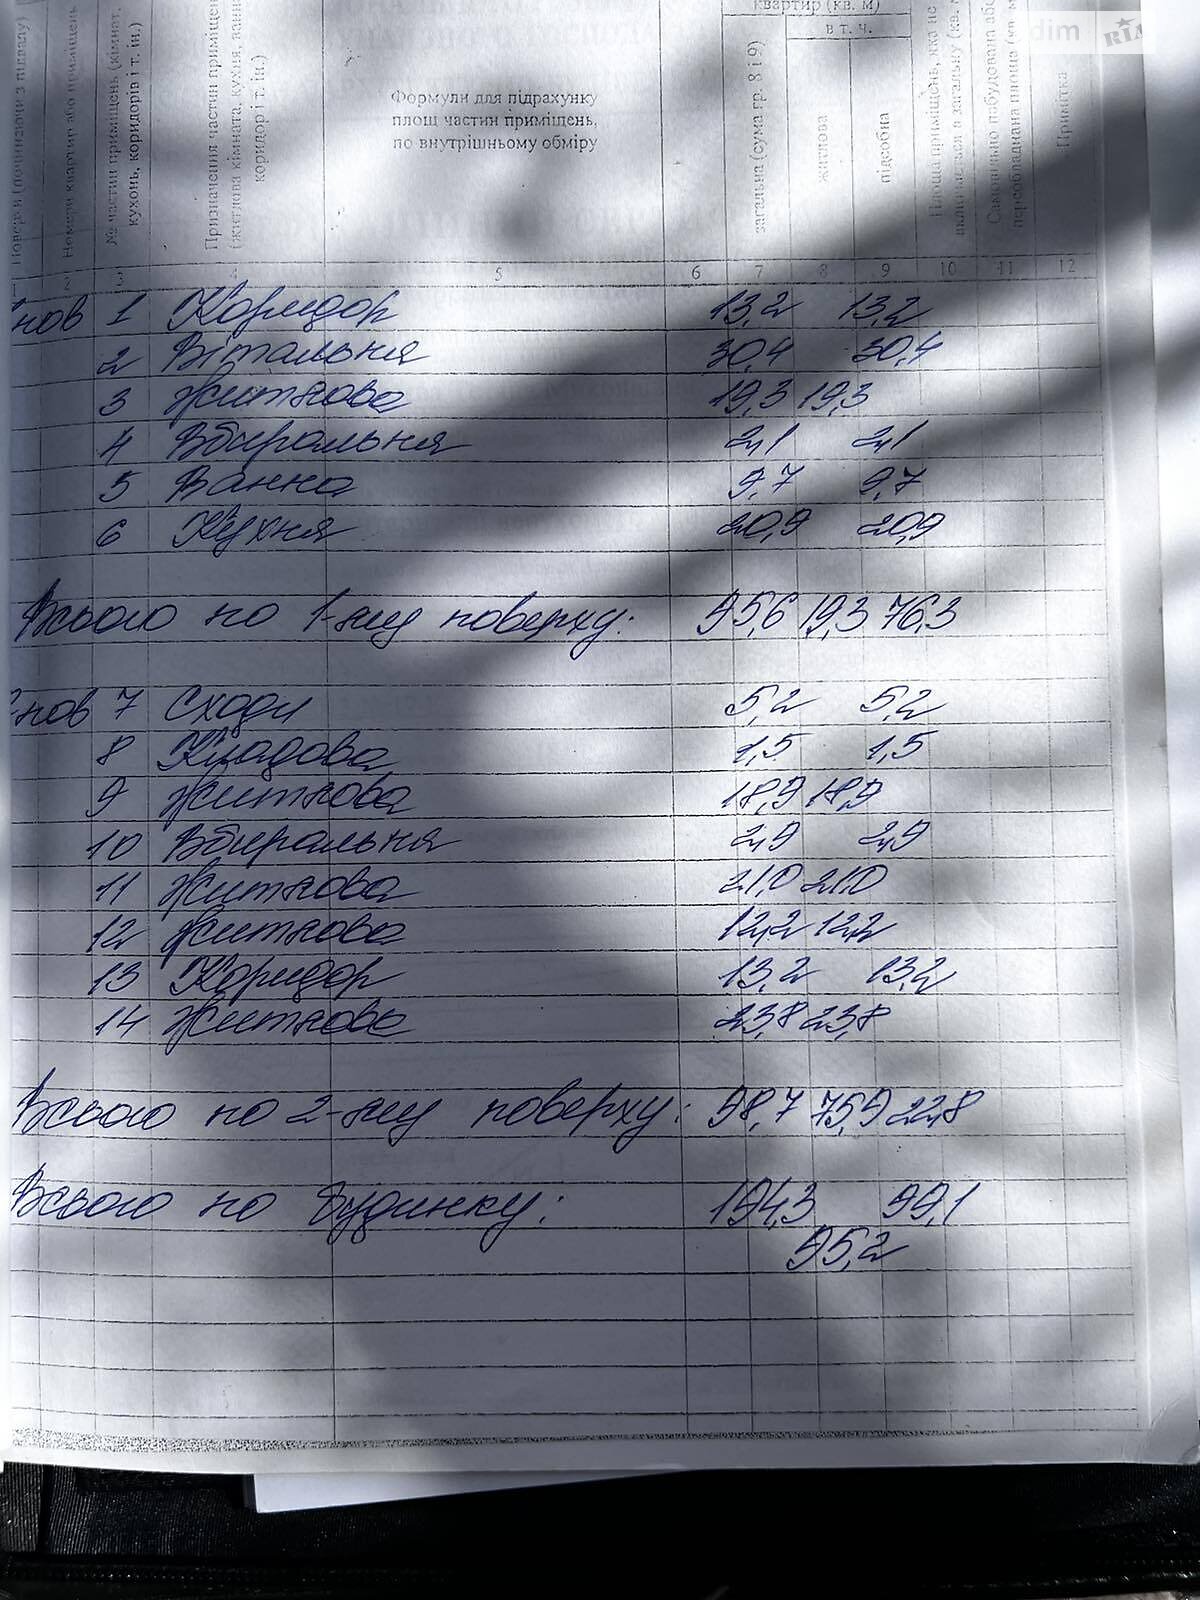 dim RIA
квартир (кв. м)
в т. ч.
Поверхи (починаючи з підвалу)
Номери квартир або приміщень
№ частин приміщень (кімнат, кухонь, коридорів і т. ін.)
Призначення частин приміщень (житлова кімната, кухня, ванна, коридор і т. ін.)
Формули для підрахунку
площ частин приміщень,
по внутрішньому обміру
загальна (сума гр. 8 і 9)
житлова
підсобна
Площа приміщень, яка не включається в загальну (кв. м
Самовільно збудована або переобладнана площа (кв. м
Примітка
1 2 3 4 5 6 7 8 9 10 11 12
пов 1 Коридор 13,2 13,2
2 Вітальня 30,4 30,4
3 Житлова 19,3 19,3
4 Вбиральня 2,1 2,1
5 Ванна 9,7 9,7
6 Кухня 20,9 20,9
Всього по 1-му поверху: 95,6 19,3 76,3
пов 7 Сходи 5,2 5,2
8 Кладова 1,5 1,5
9 Житлова 18,9 18,9
10 Вбиральня 2,9 2,9
11 Житлова 21,0 21,0
12 Житлова 12,2 12,2
13 Коридор 13,2 13,2
14 Житлова 23,8 23,8
Всього по 2-му поверху: 98,7 75,9 22,8
Всього по будинку: 194,3 99,1
95,2